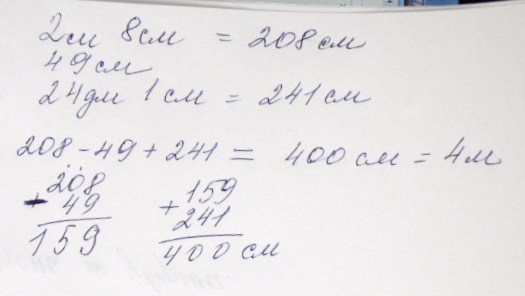 2см 8см = 208см
49см
24дм 1см = 241см
208-49+241 = 400см = 4м
208
- 49
159
+ 159
241
400см